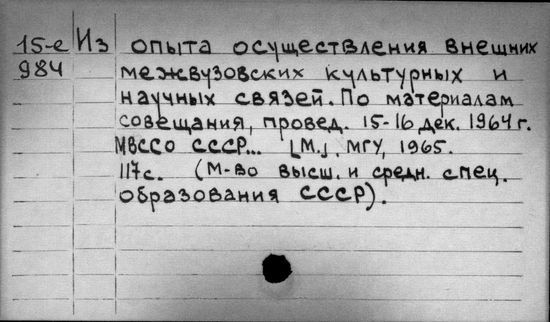 15-е Из опыта осуществления внешних
984 межвузовских культурных и
научных связей. По материалам
совещания, провед. 15-16 дек. 1964 г.
МВССО СССР... [М.], МГУ, 1965.
117с. (М-во высш. и средн. спец.
образования СССР).